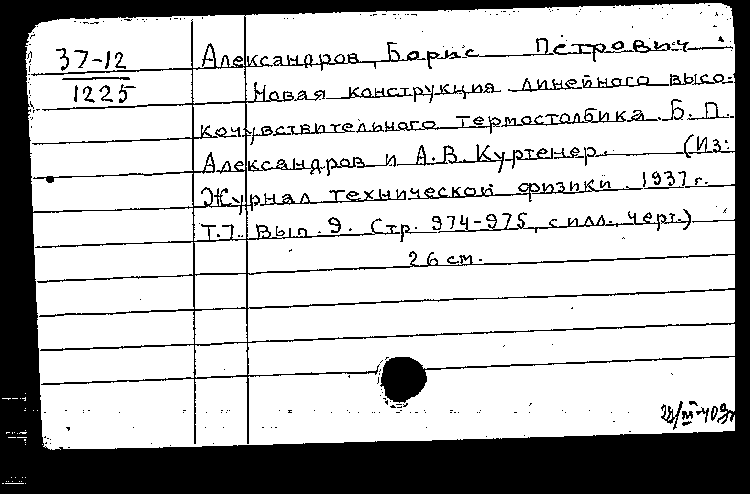 37-12
1225
Александров, Борис Петрович.
Новая конструкция линейного высо-
кочувствительного термостолбика Б. П.
Александров и А. В. Куртенер. (Из:
Журнал технической физики 1937 г.
Т.7. Вып. 9. Стр. 974-975, с илл., черт.)
26 см.